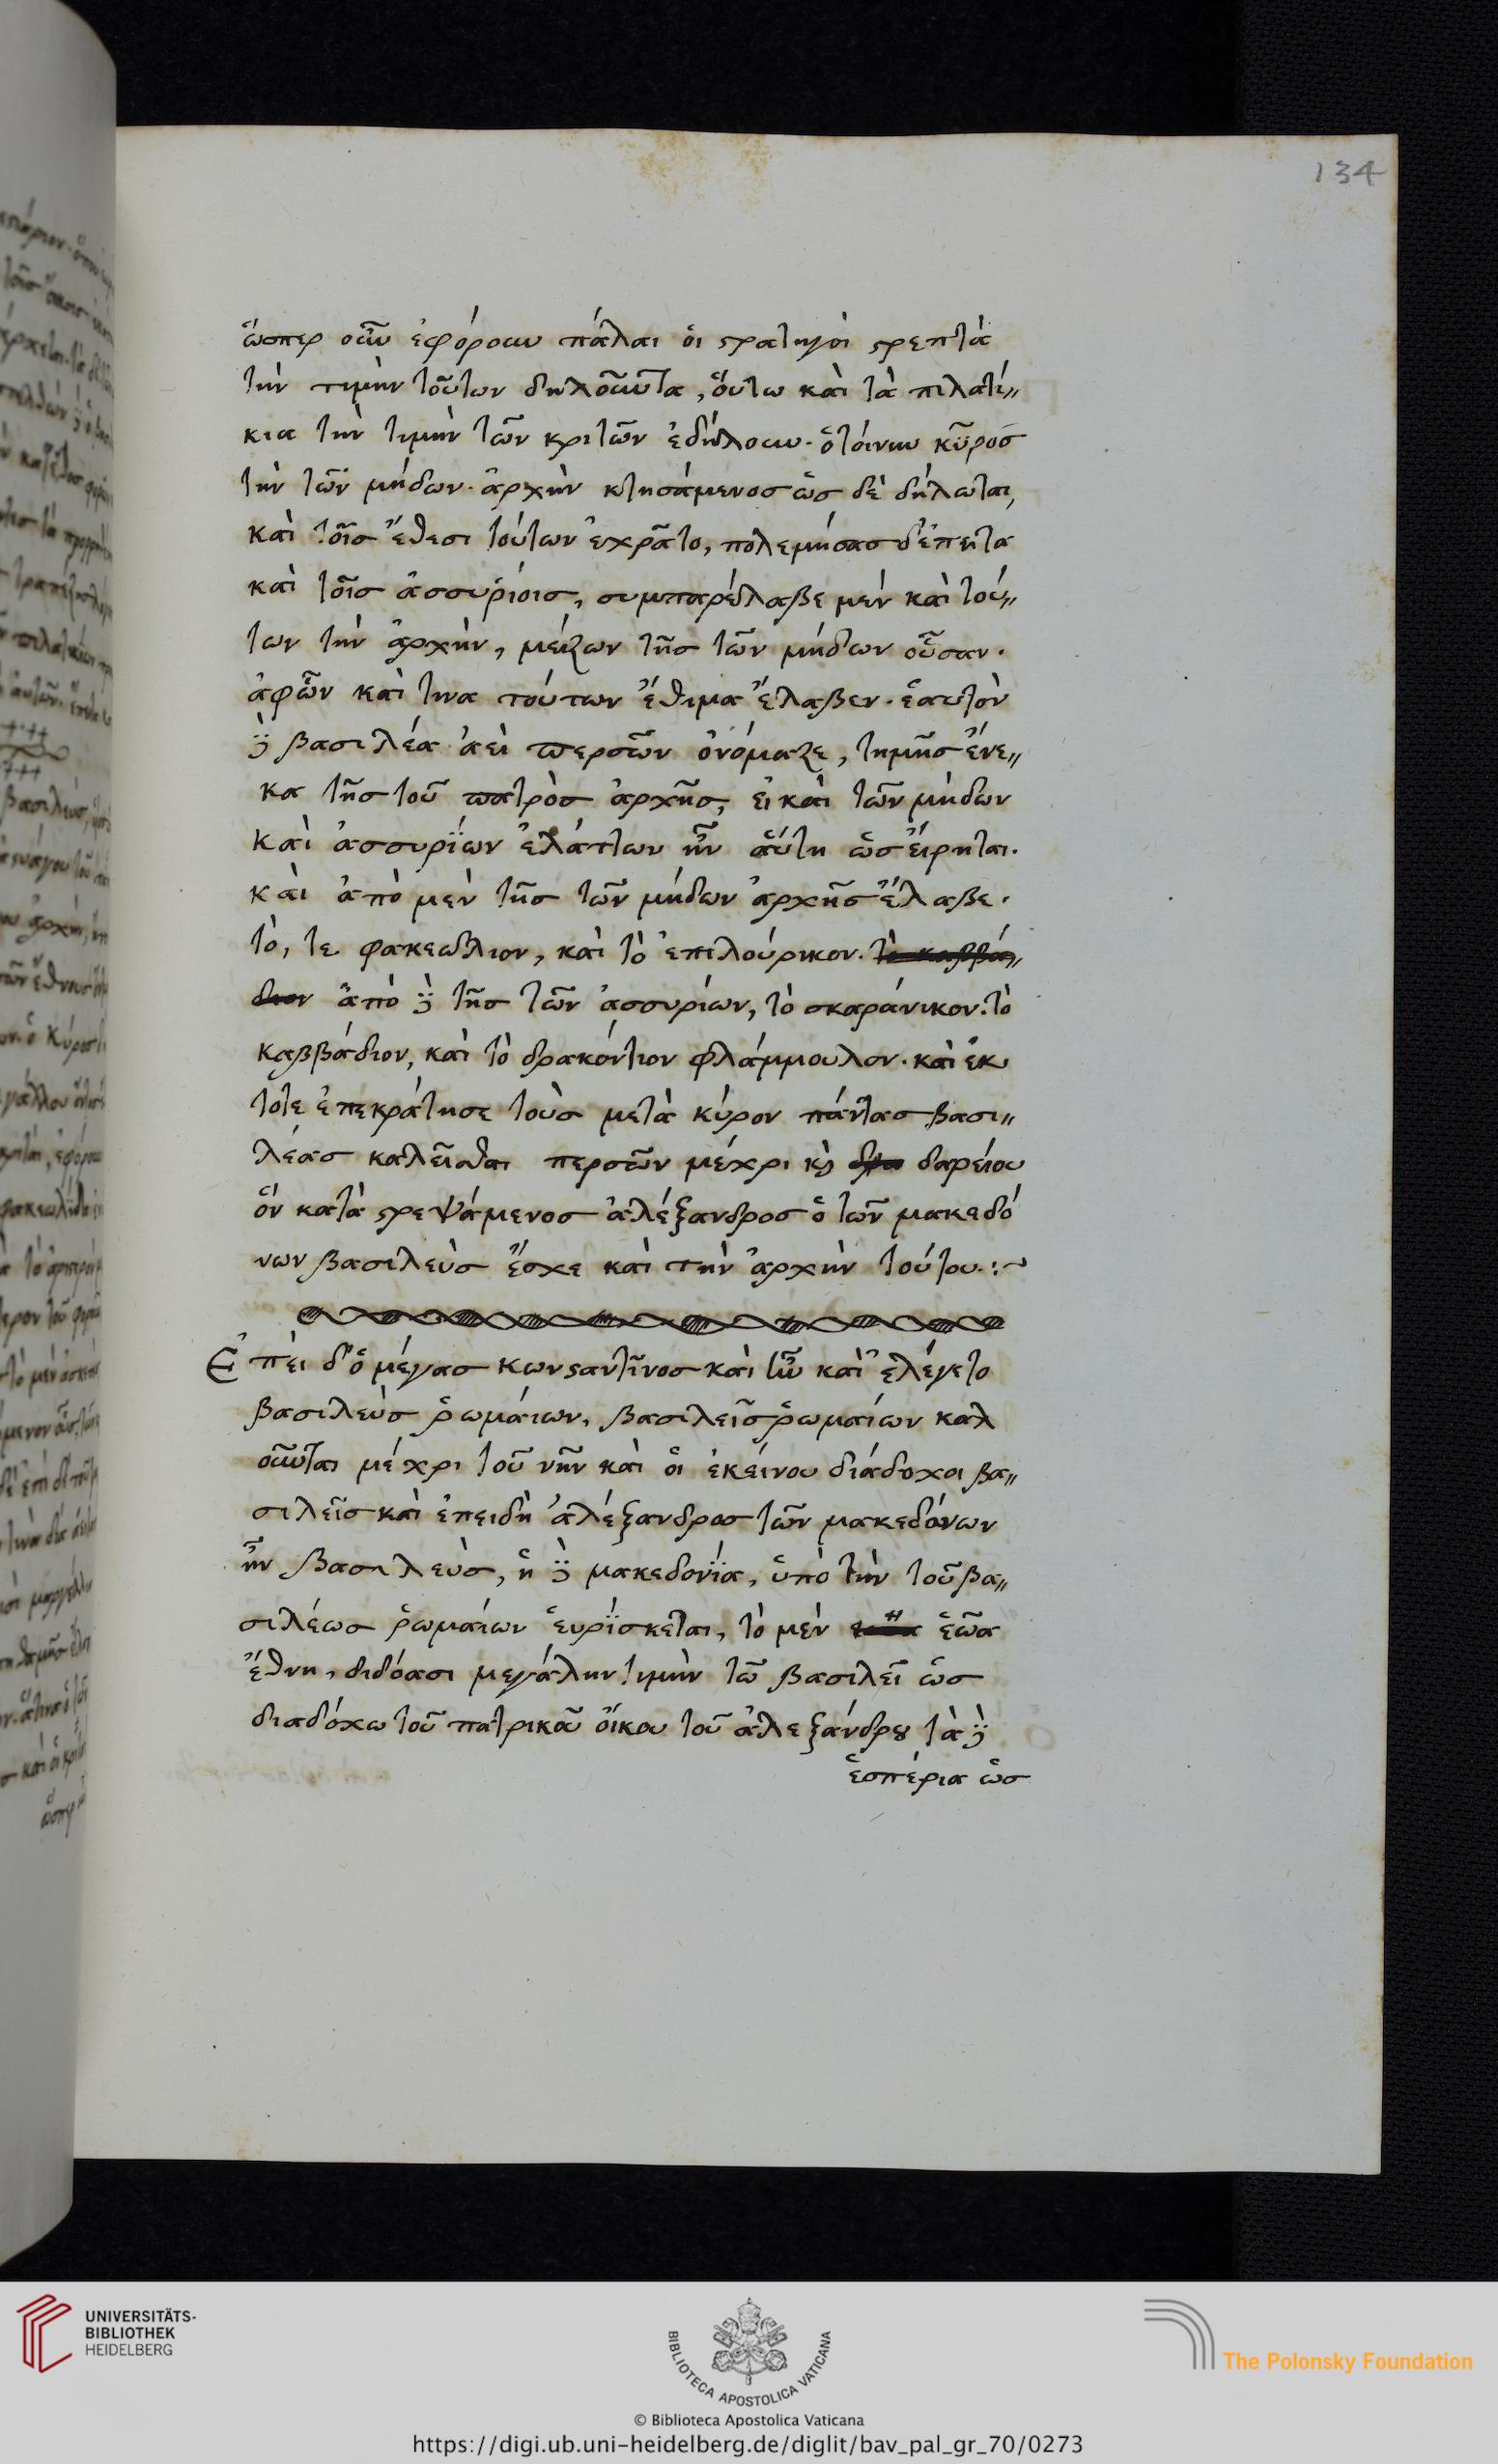 134
ὥσπερ οὖν ἐφόρουν πάλαι ὁι στρατηγὸι στρεπτὰ
τὴν τιμὴν τοῦτων δηλοῦντα, ὅυτω καὶ τὰ πιλατί〃
κια τὴν τιμὴν τῶν κριτῶν ἐδήλουν· ὁ τόινυν κῦρος
τὴν τῶν μήδων· ἀρχὴν κτησάμενος ὡς δὲ δήλωται,
καὶ τοῖς ἔθεσι τούτων ἐχρᾶτο, πολεμήσας δ'ἔπειτα
καὶ τοῖς ἀσσυρίοις, συμπαρέλαβε μὲν καὶ τού〃
των τὴν ἀρχὴν, μείζων τῆς τῶν μήδων οὖσαν·
ἀφῶν καὶ τινα τούτων ἔθιμα ἔλαβεν· ἑαυτὸν
δὲ βασιλέα ἀεὶ περσῶν ὀνόμαζε, τημῆς ἕνε〃
κα τῆς τοῦ πατρὸς ἀρχῆς, ἐι καὶ τῶν μήδων
καὶ ἀσσυρΐων ἐλάττων ἦν ἅυτη ὡς ἔιρηται·
καὶ ἀπὸ μὲν τῆς τῶν μήδων ἀρχῆς ἔλαβε·
τὸ, τε φακεώλιον, καὶ τὸ ἐπιλούρικον· τὸ καββά〃
διον ἀπὸ δὲ τῆς τῶν ἀσσυρίων, τὸ σκαράνικον· τὸ
καββάδιον, καὶ τὸ δρακόντιον φλάμμουλον· καὶ ἐκ
τοτε ἐπεκράτησε τοὺς μετὰ κύρον πάντας βασι〃
λέας καλεῖσθαι περσῶν μέχρι κὶ δρα δαρείου
ὃν κατὰ στρεψάμενος ἀλέξανδρος ὁ τῶν μακεδό
νων βασιλεὺς ἔσχε καὶ τὴν ἀρχὴν τούτου·:~
Ἐπὲι δ'ὁ μέγας κωνσταντῖνος καὶ ἦν καὶ ἐλέγετο
βασιλεὺς ῥωμάιων, βασιλεῖς ῥωμαίων καλ
οῦνται μέχρι τοῦ νῦν καὶ ὁι ἐκείνου διάδοχοι βα〃
σιλεῖς καὶ ἐπειδὴ ἀλέξανδρος τῶν μακεδόνων
ἦν βασιλεὺς, ἡ δὲ μακεδονΐα, ὑπὸ τὴν τοῦ βα〃
σιλέως ῥωμαίων ἑυρΐσκεται, τὸ μὲν ἑῶα
ἔθνη, διδόασι μεγάλην τιμὴν τῶ βασιλεῖ ὡς
διαδόχω τοῦ πατρικοῦ ὄικου τοῦ ἀλεξάνδρου τὰ δὲ
ἑσπέρια ὡς
UNIVERSITÄTS-
BIBLIOTHEK
HEIDELBERG
BIBLIOTECA APOSTOLICA VATICANA
The Polonsky Foundation
© Biblioteca Apostolica Vaticana
https://digi.ub.uni-heidelberg.de/diglit/bav_pal_gr_70/0273